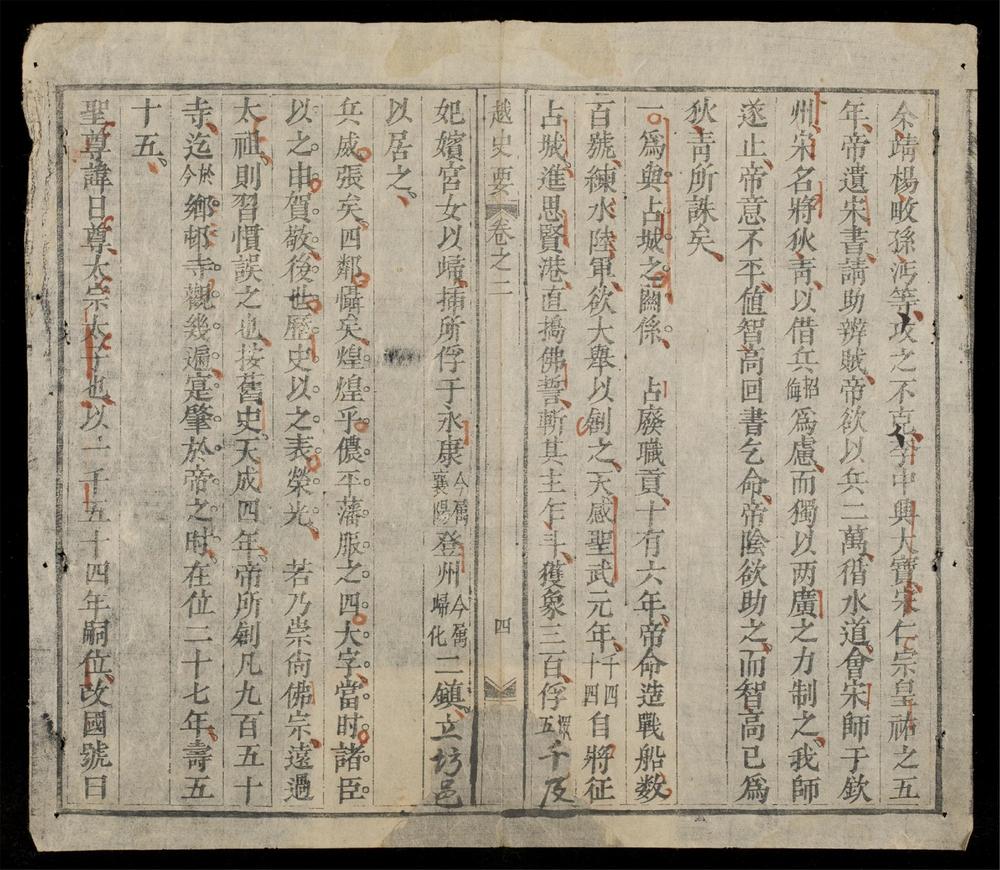 余靖楊畋孫沔等攻之不克宇中興大寶宋仁宗皇祐之五
年帝遺宋書請助辨賊帝欲以兵二萬循水道會宋師于欽
州宋名將狄青以借兵招侮爲慮而獨以两廣之力制之我師
遂止帝意不平値智高回書乞命帝陰欲助之而智高已爲
狄青所誅矣
一爲與占城之關係 占廢職貢十有六年帝命造戰船数
百號練水陸軍欲大舉以創之天感聖武元年千四十四自將征
占城進思賢港直搗佛誓斬其主乍斗獲象三百俘五千及
越史要 卷之二 四
妃嬪宮女以歸插所俘于永康今属襄陽登州今属歸化二鎮立坊邑
以居之
兵威張矣四鄰懾矣煌煌乎儂平藩服之四大字當时諸臣
以之申賀敬後世歷史以之表榮光 若乃崇尙佛宗遠過
太祖則習慣誤之也按舊史天成四年帝所創凡九百五十
寺迄於今鄉邨寺觀幾遍寔肇於帝之时在位二十七年壽五
十五
聖尊諱日尊太宗太子也以一千五十四年嗣位改國號曰